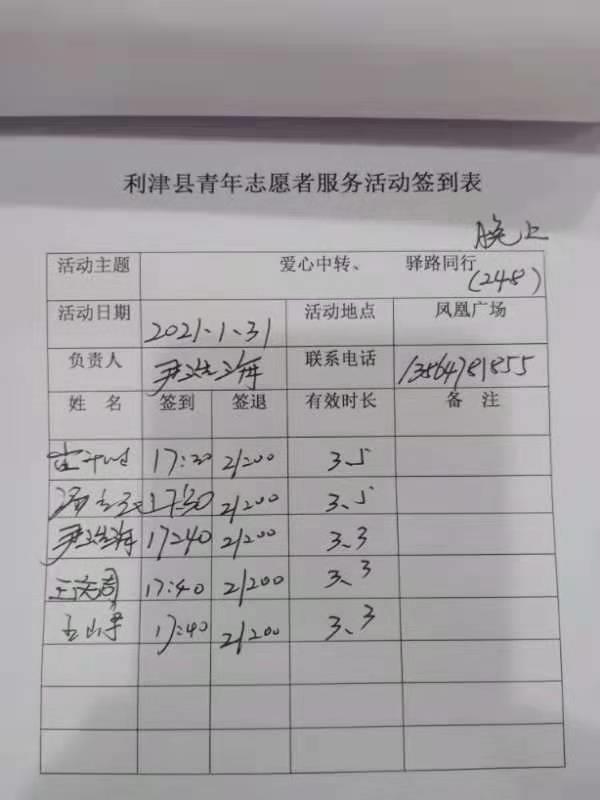 利津县青年志愿者服务活动签到表
晚上
活动主题 爱心中转、 驿路同行
(248)
活动日期 2021.1.31 活动地点 凤凰广场
负责人 联系电话 13564781855
姓 名 签到 签退 有效时长 备 注
17:30 21:00 3.5
17:30 21:00 3.5
17:40 21:00 3.3
17:40 21:00 3.3
17:40 21:00 3.3